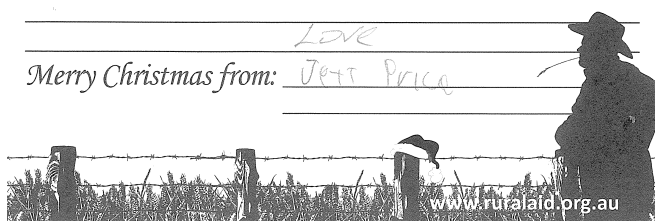 Love
Merry Christmas from: Jett Price
www.ruralaid.org.au